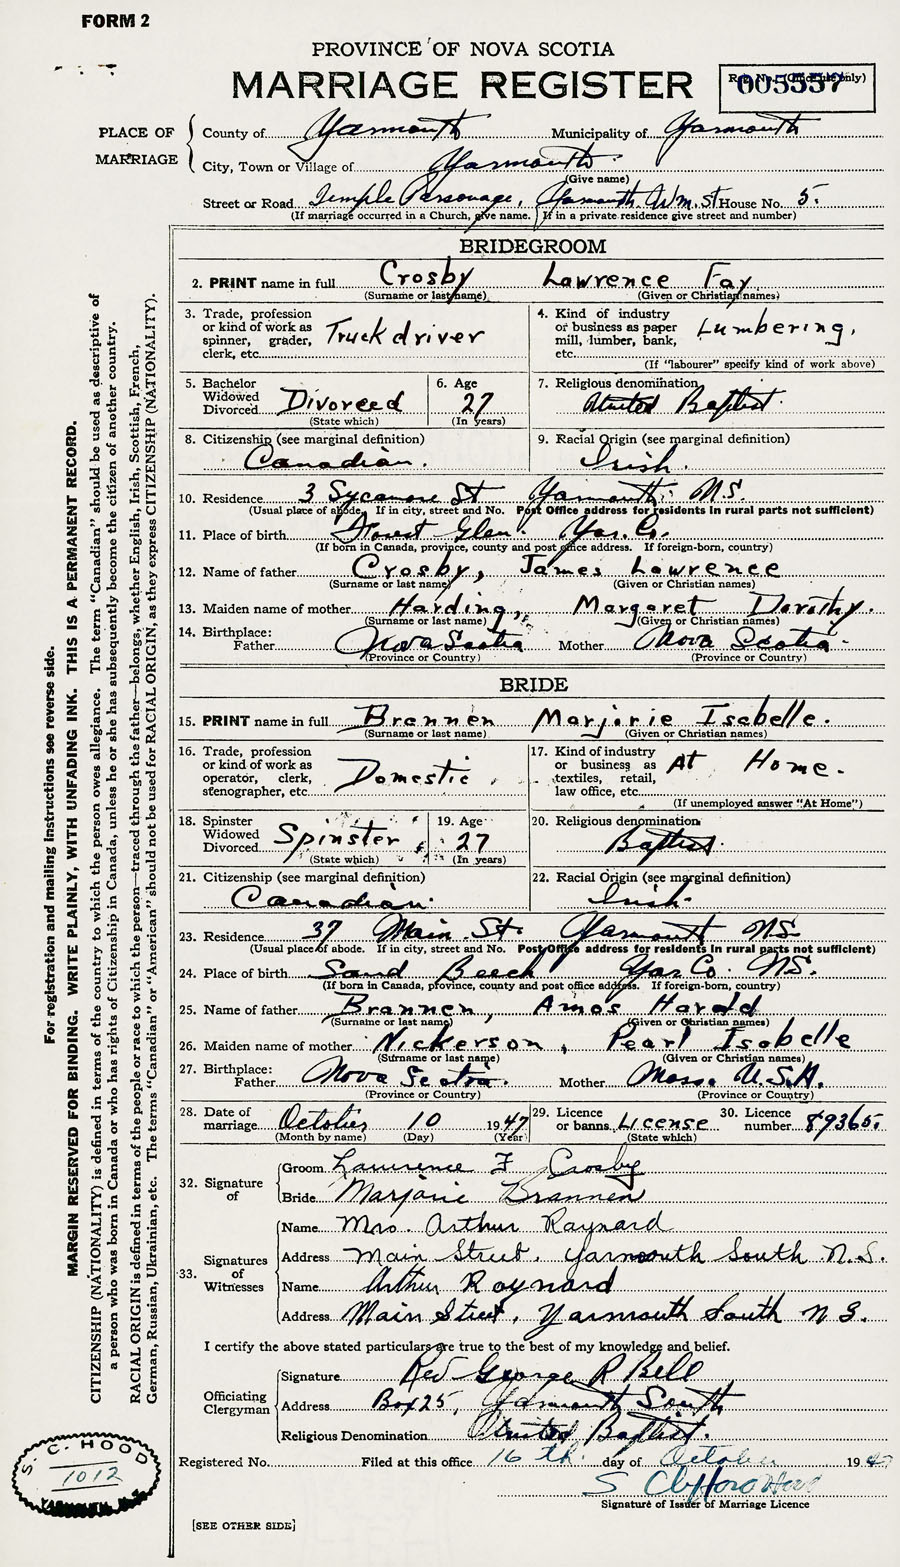 FORM 2
PROVINCE OF NOVA SCOTIA
MARRIAGE REGISTER
Reg. No. (Office use only)
005557
PLACE OF MARRIAGE
County of Yarmouth Municipality of Yarmouth
City, Town or Village of Yarmouth.
(Give name)
Street or Road Temple Parsonage, Yarmouth. Wm. St House No. 5.
(If marriage occurred in a Church, give name. If in a private residence give street and number)
BRIDEGROOM
2. PRINT name in full Crosby Lawrence Fay
(Surname or last name) (Given or Christian names)
3. Trade, profession or kind of work as spinner, grader, clerk, etc. Truck driver
4. Kind of industry or business as paper mill, lumber, bank, etc. Lumbering.
(If "labourer" specify kind of work above)
5. Bachelor Widowed Divorced Divorced
(State which)
6. Age 27
(In years)
7. Religious denomination United Baptist.
8. Citizenship (see marginal definition) Canadian.
9. Racial Origin (see marginal definition) Irish.
10. Residence 3 Sycamore St Yarmouth, N.S.
(Usual place of abode. If in city, street and No. Post Office address for residents in rural parts not sufficient)
11. Place of birth Forest Glen. Yar. Co.
(If born in Canada, province, county and post office address. If foreign-born, country)
12. Name of father Crosby, James Lawrence
(Surname or last name) (Given or Christian names)
13. Maiden name of mother Harding, Margaret Dorothy.
(Surname or last name) (Given or Christian names)
14. Birthplace: Father Nova Scotia Mother Nova Scotia.
(Province or Country) (Province or Country)
BRIDE
15. PRINT name in full Brannen Marjorie Isabelle.
(Surname or last name) (Given or Christian names)
16. Trade, profession or kind of work as operator, clerk, stenographer, etc. Domestic
17. Kind of industry or business as textiles, retail, law office, etc. At Home.
(If unemployed answer "At Home")
18. Spinster Widowed Divorced Spinster
(State which)
19. Age 27
(In years)
20. Religious denomination Baptist.
21. Citizenship (see marginal definition) Canadian.
22. Racial Origin (see marginal definition) Irish.
23. Residence 37 Main St. Yarmouth N.S.
(Usual place of abode. If in city, street and No. Post Office address for residents in rural parts not sufficient)
24. Place of birth Sand Beech Yar Co. N.S.
(If born in Canada, province, county and post office address. If foreign-born, country)
25. Name of father Brannen, Amos Harold
(Surname or last name) (Given or Christian names)
26. Maiden name of mother Nickerson, Pearl Isabelle
(Surname or last name) (Given or Christian names)
27. Birthplace: Father Nova Scotia. Mother Mass. U.S.A.
(Province or Country) (Province or Country)
28. Date of marriage October 10 1947
(Month by name) (Day) (Year)
29. Licence or banns License
(State which)
30. Licence number 89365.
32. Signature of
Groom Lawrence F Crosby
Bride Marjorie Brannen
33. Signatures of Witnesses
Name Mrs. Arthur Raynard
Address Main Street, Yarmouth South N.S.
Name Arthur Raynard
Address Main Street, Yarmouth South N S.
I certify the above stated particulars are true to the best of my knowledge and belief.
Officiating Clergyman
Signature Rev George R Bell
Address Box 25, Yarmouth South
Religious Denomination United Baptist.
Registered No. Filed at this office 16th. day of October 1947
S Clifford Hood
Signature of Issuer of Marriage Licence
[SEE OTHER SIDE]
For registration and mailing instructions see reverse side.
MARGIN RESERVED FOR BINDING. WRITE PLAINLY, WITH UNFADING INK. THIS IS A PERMANENT RECORD.
CITIZENSHIP (NATIONALITY) is defined in terms of the country to which the person owes allegiance. The term "Canadian" should be used as descriptive of
a person who was born in Canada or who has rights of Citizenship in Canada, unless he or she has subsequently become the citizen of another country.
RACIAL ORIGIN is defined in terms of the people or race to which the person—traced through the father—belongs, whether English, Irish, Scottish, French,
German, Russian, Ukrainian, etc. The terms "Canadian" or "American" should not be used for RACIAL ORIGIN, as they express CITIZENSHIP (NATIONALITY).
S. C. HOOD
1012
YARMOUTH, N.S.